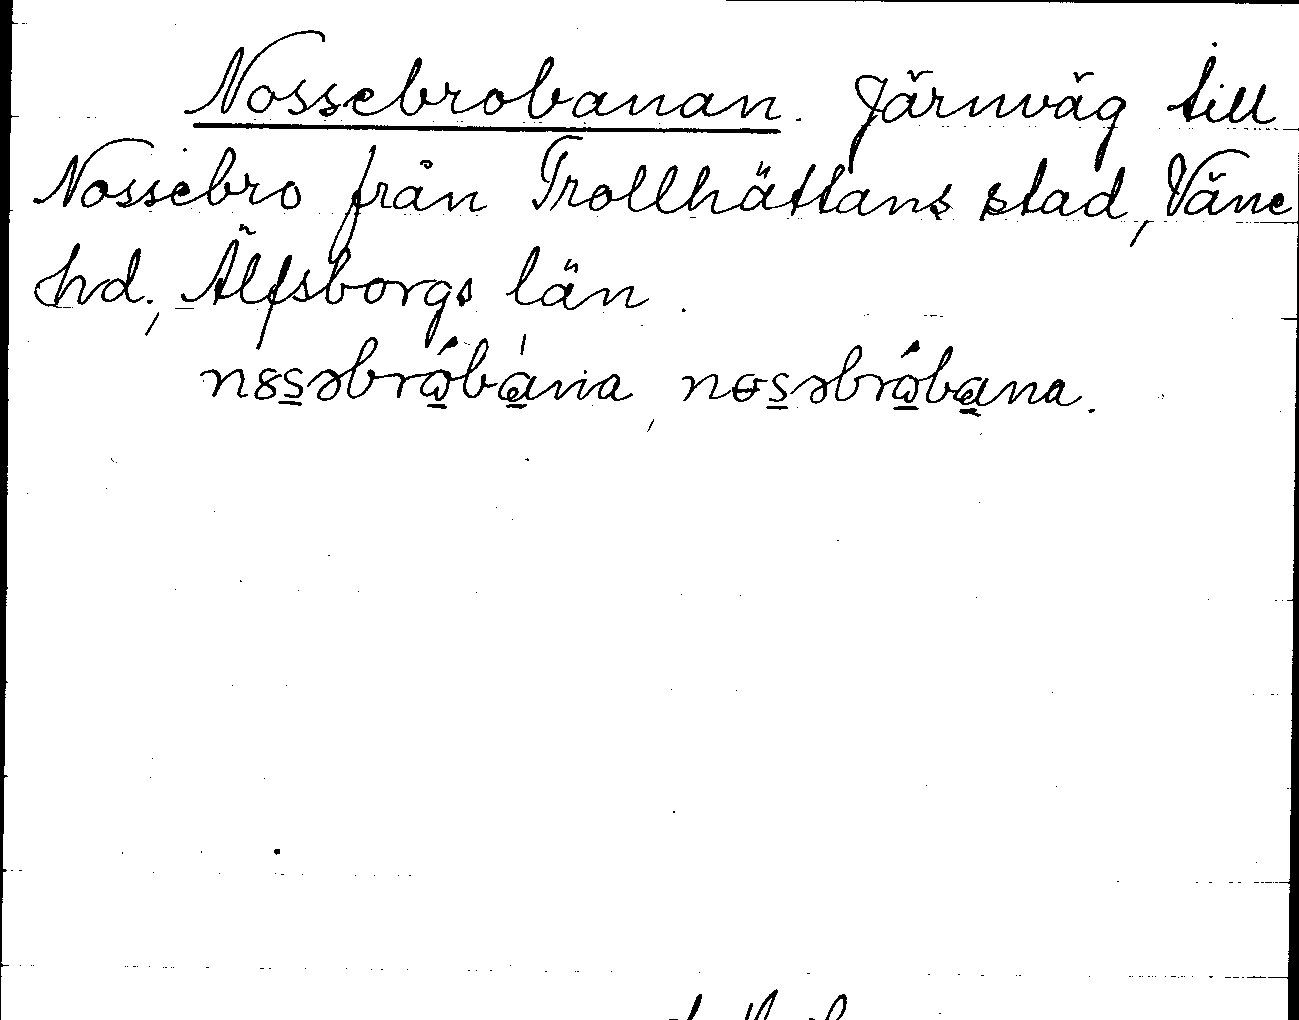 Nossebrobanan. Järnväg till
Nossebro från Trollhättans stad, Väne
hd., Älfsborgs län.
n8s̲əbrώ̲bà̲na, nɵs̲əbrώ̲ba̲na.